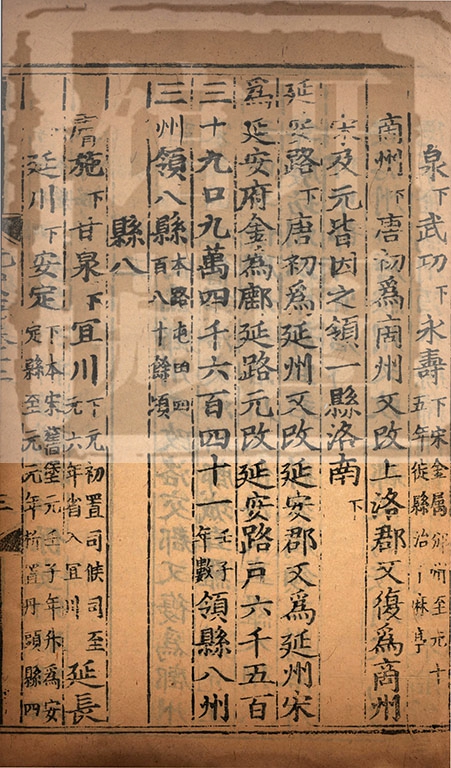 泉下武功下永壽下宋金屬邠州至元十五年徙縣治于麻亭
商州下唐初爲商州又改上洛郡又復爲商州
宋及元皆因之領一縣洛南下
延安路下唐初爲延州又改延安郡又爲延州宋
爲延安府金爲鄜延路元改延安路戶六千五百
三十九口九萬四千六百四十一壬子年數領縣八州
三州領八縣本路屯田四百八十餘頃
縣八
膚施下甘泉下宜川下元初置司候司至元六年省入宜川延長
延川下安定下本宋舊堡元壬子年升爲安定縣至元元年析置丹頭縣四